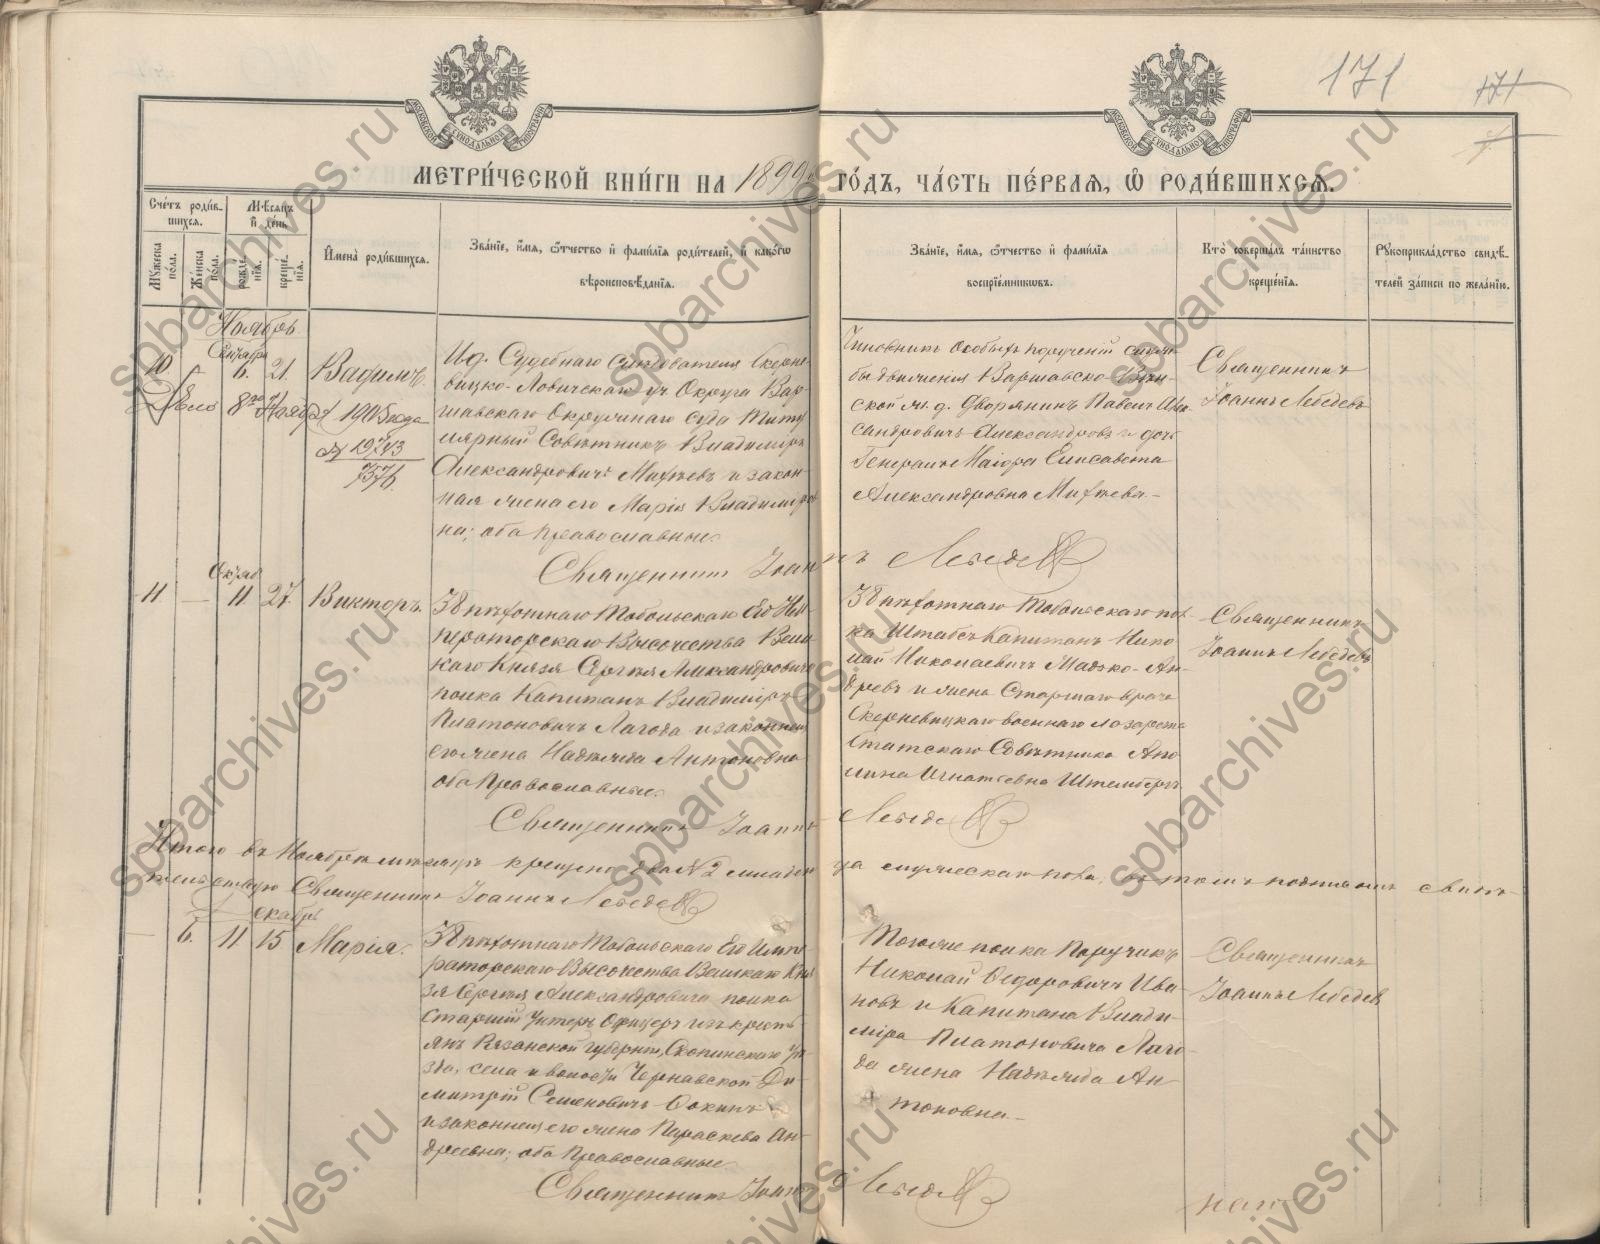 171
171
МЕТРИ́ЧЕСКОЙ КНИ́ГИ НА 1899 ГО́ДЪ, ЧА́СТЬ ПЕ́РВАЯ, Ѡ РОДИ́ВШИХСЯ.
Сче́тъ роди́в-
шихся.
Му́жеска по́ла.
Же́нска по́ла.
Мѣ́сяцъ и́ де́нь
рожде́нїя.
креще́нїя.
И҆мена̀ роди́вшихся.
Зва́нїе, и҆́мя, ѻ҆́тчество и҆ фами́лїя роди́телей, и҆ како́гѡ
вѣроисповѣ́данїя.
Зва́нїе, и҆́мя, ѻ҆́тчество и҆ фами́лїя
воспрїе́мникѡвъ.
Кто̀ соверша́лъ та́инство
креще́нїя.
Рꙋкоприкла́дство свидѣ́-
телей за́писи по жела́нїю.
Ноябрь.
10
Октября
6.
21.
Вадимъ.
Дѣло 8го Ноября 1905 года
№ 19743
7576
И.д. Судебнаго Слѣдователя Скерне-
вицко-Ловичскаго уч. Округа Вар-
шавскаго Окружнаго Суда Титу-
лярный Совѣтникъ Владиміръ
Александровичъ Михѣевъ и закон-
ная жена его Марія Владиміров-
на; оба православные.
Чиновникъ особыхъ порученій служ-
бы движенія Варшавско-Вѣн-
ской ж. д. Дворянинъ Павелъ Алек-
сандровичъ Александровъ и дочь
Генералъ Маіора Елисавета
Александровна Михѣева.
Священникъ
Іоаннъ Лебедевъ
Священникъ Іоаннъ Лебедевъ
11
—
Октяб
11
27.
Викторъ.
38 пѣхотнаго Тобольскаго Его Им-
ператорскаго Высочества Вели-
каго Князя Сергѣя Александровича
полка Капитанъ Владиміръ
Платоновичъ Лагода и законная
его жена Надежда Антоновна
оба Православные.
38 пѣхотнаго Тобольскаго пол-
ка Штабсъ Капитанъ Нико-
лай Николаевичъ
и жена Старшаго врача
Скерневицкаго военнаго лазарета
Статскаго Совѣтника Апо-
Игнатьевна Штембергъ
Священникъ
Іоаннъ Лебедевъ
Священникъ Іоаннъ Лебедевъ
Итого въ Ноябрѣ мѣсяцѣ крещено два № 2 младенца мужескаго пола, въ томъ подписомъ свидѣ-
тельствую Священникъ Іоаннъ Лебедевъ
Декабрь
—
6.
11
15
Марія.
38 пѣхотнаго Тобольскаго Его Импе-
раторскаго Высочества Великаго Кня-
зя Сергѣя Александровича полка
Старшій Унтеръ Офицеръ изъ кресть-
янъ Рязанской губерніи, Скопинскаго уѣ-
зда, села и волости Чернавской Ди-
митрій Семеновичъ
и законная его жена Параскева Ан-
дреевна; оба Православные.
Того же полка Поручикъ
Николай Ѳедоровичъ Ива-
новъ и Капитана Влади-
міра Платоновича Лаго-
да жена Надежда Ан-
тоновна.
Священникъ
Іоаннъ Лебедевъ
Священникъ Іоаннъ Лебедевъ
spbarchives.ru